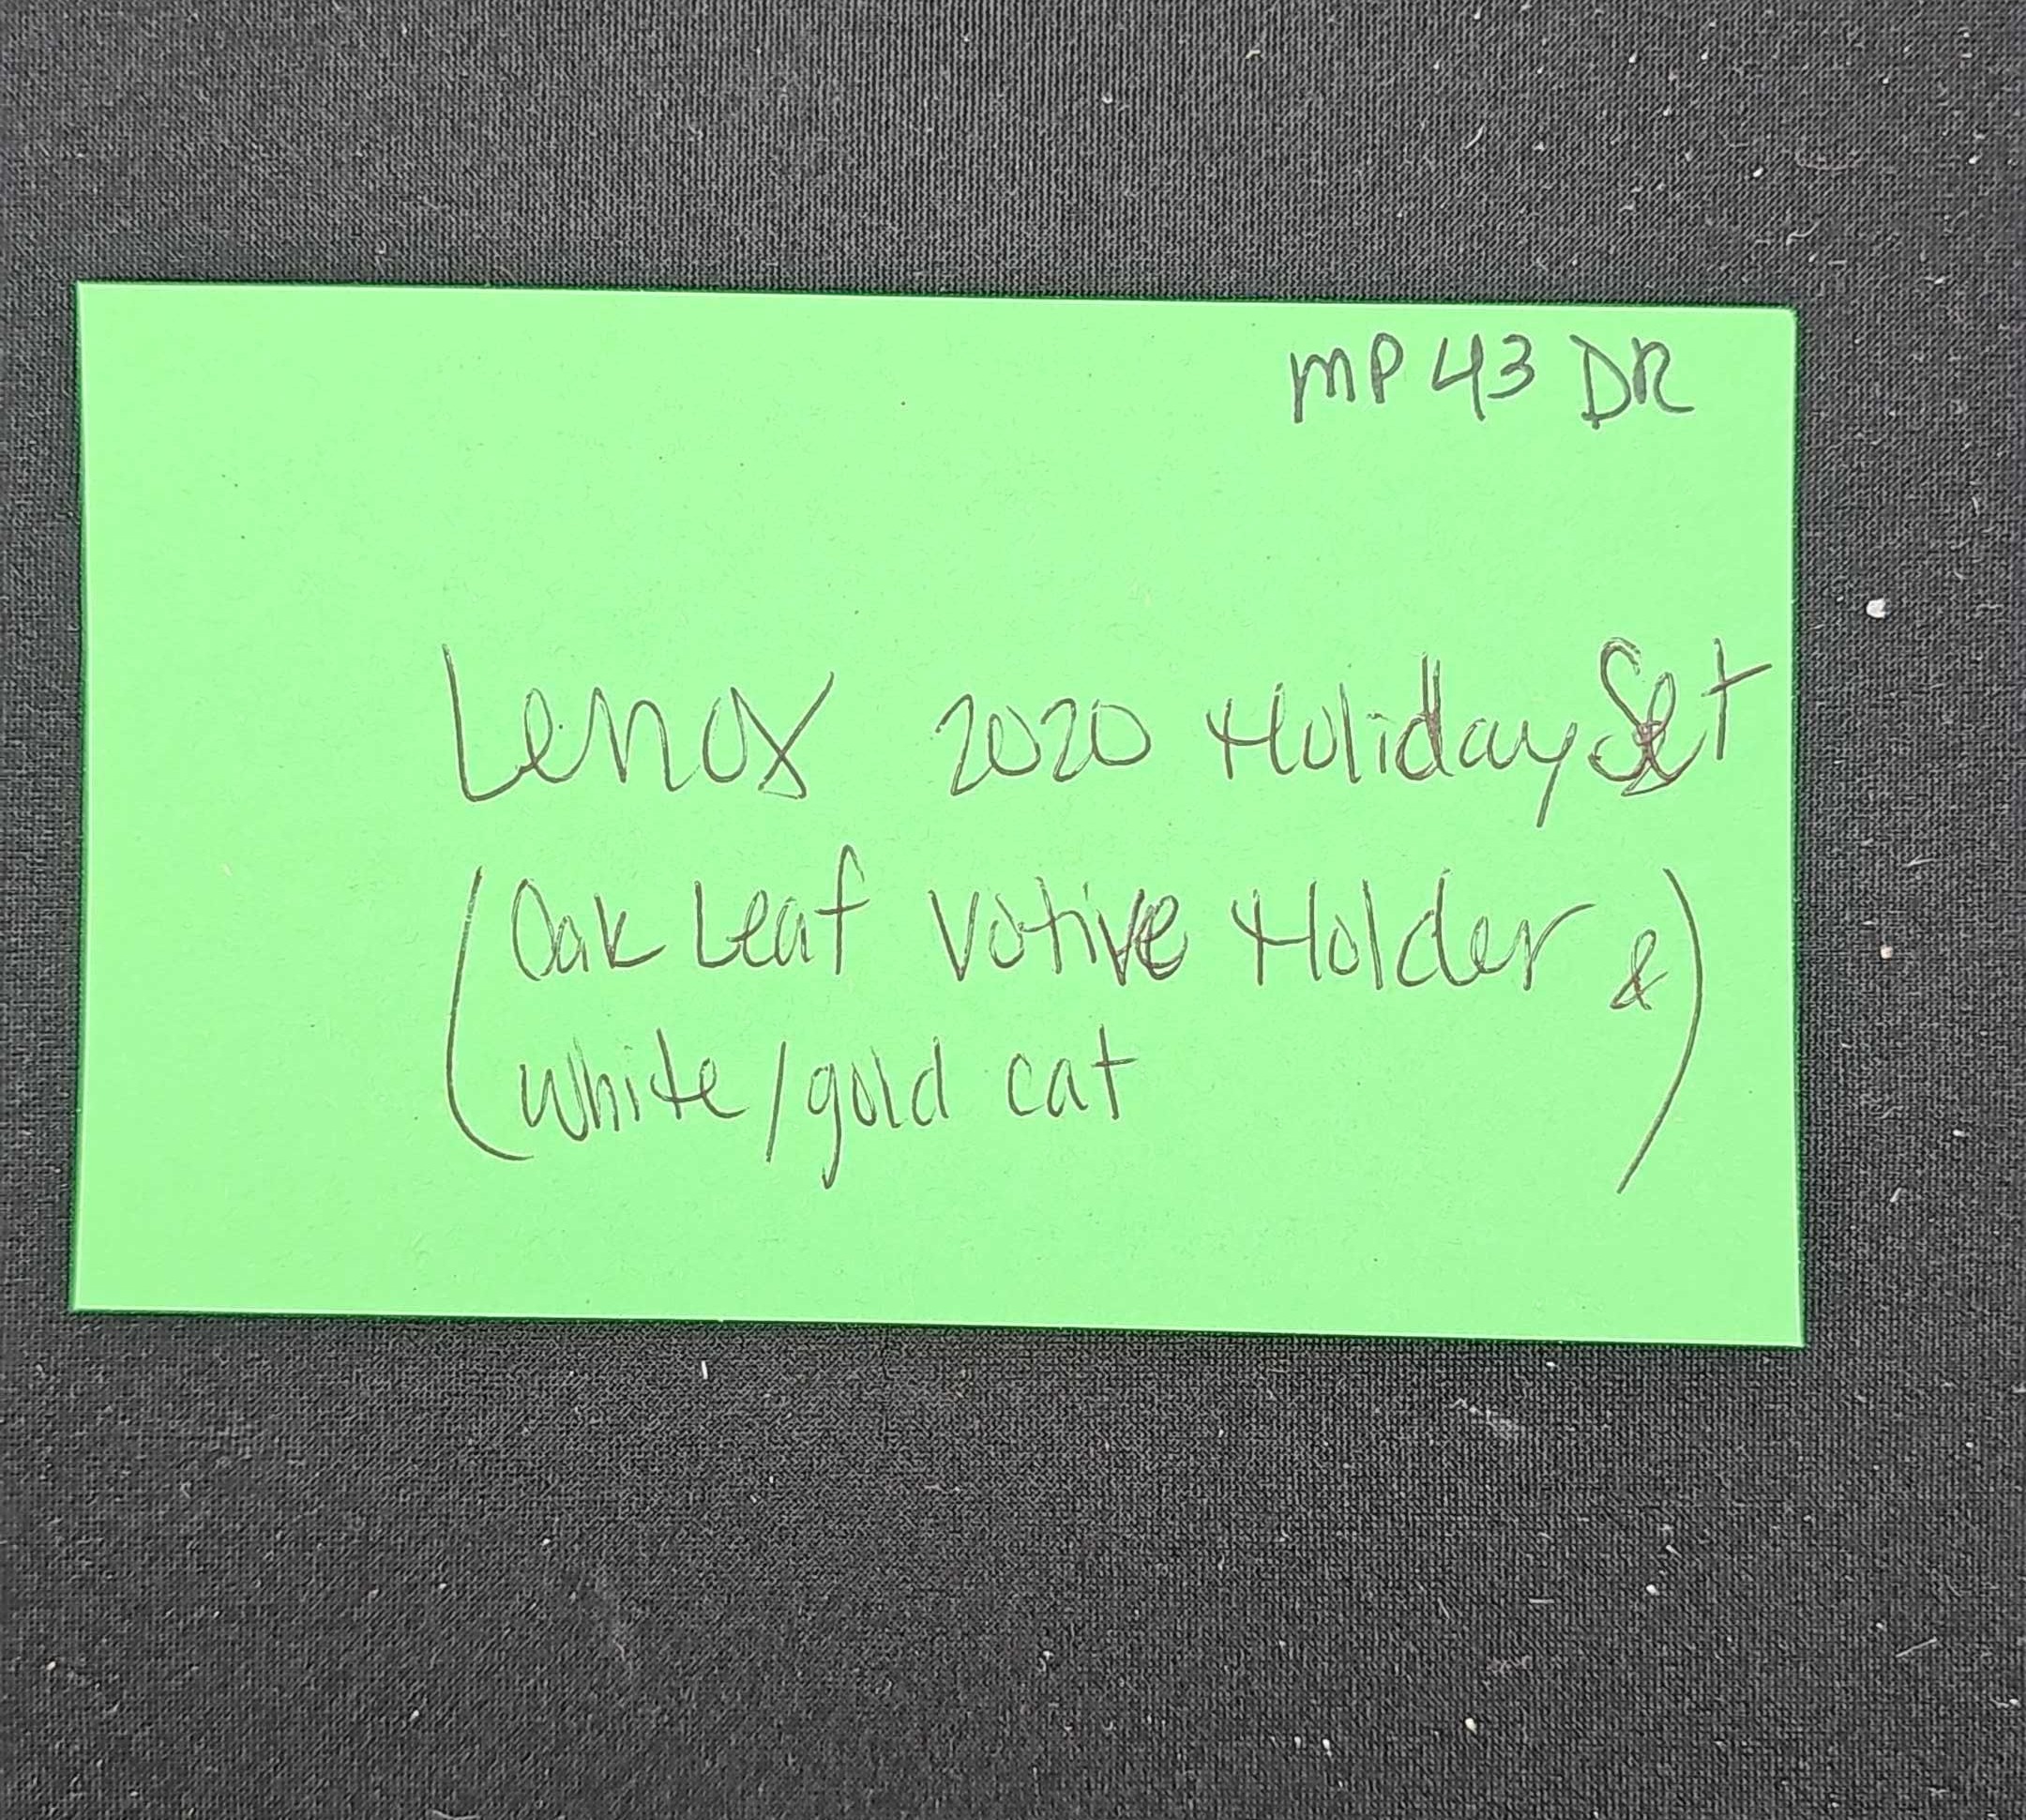 MP 43 DR
Lenox 2020 Holiday Set
(Oak Leaf Votive Holder &)
white/gold cat